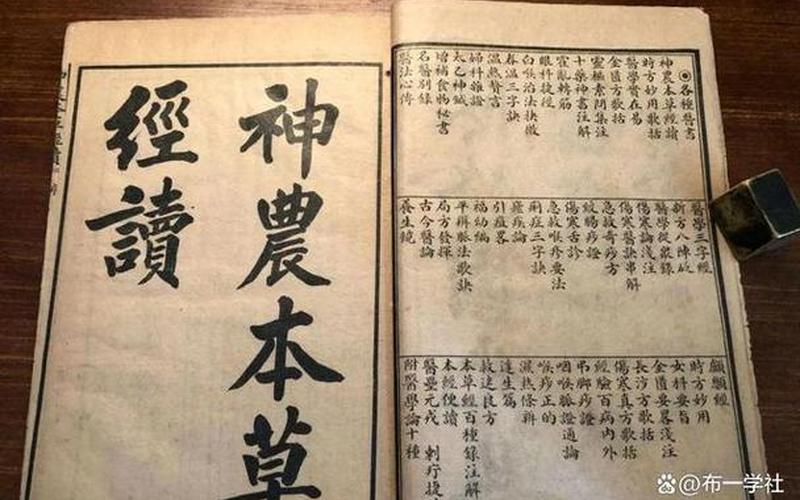 ◉各種醫書
神農本草經讀
時方妙用歌括
醫學實在易
金匱方歌括
靈樞素問集注
十藥神書注解
霍亂轉筋
眼科捷徑
白喉治法抉微
春溫三字訣
溫熱贅言
婦科雜證
太乙神鍼
增補食物秘書
名醫別錄
醫法心傳
醫學三字經
新方八陣砭
醫學從衆錄
傷寒論淺注
傷寒醫訣串解
急救奇痧方
絞腸痧證
傷寒舌診
急救喉疹要法
痢症三字訣
瘧疾論
引痘畧
福幼編
平辨脈法歌訣
局方發揮
古今醫論
養生鏡
顱顖經
時方妙用
女科要旨
金匱要畧淺注
長沙方歌括
傷寒真方歌括
經驗百病內外
弔脚痧證
咽喉脈證通論
喉痧正的
濕熱條辨
達生篇
救迷良方
本草經百種錄注解
本經便讀
醫壘元戎 刺疔捷
附醫學論十種
神農本草
經讀
@布一学社